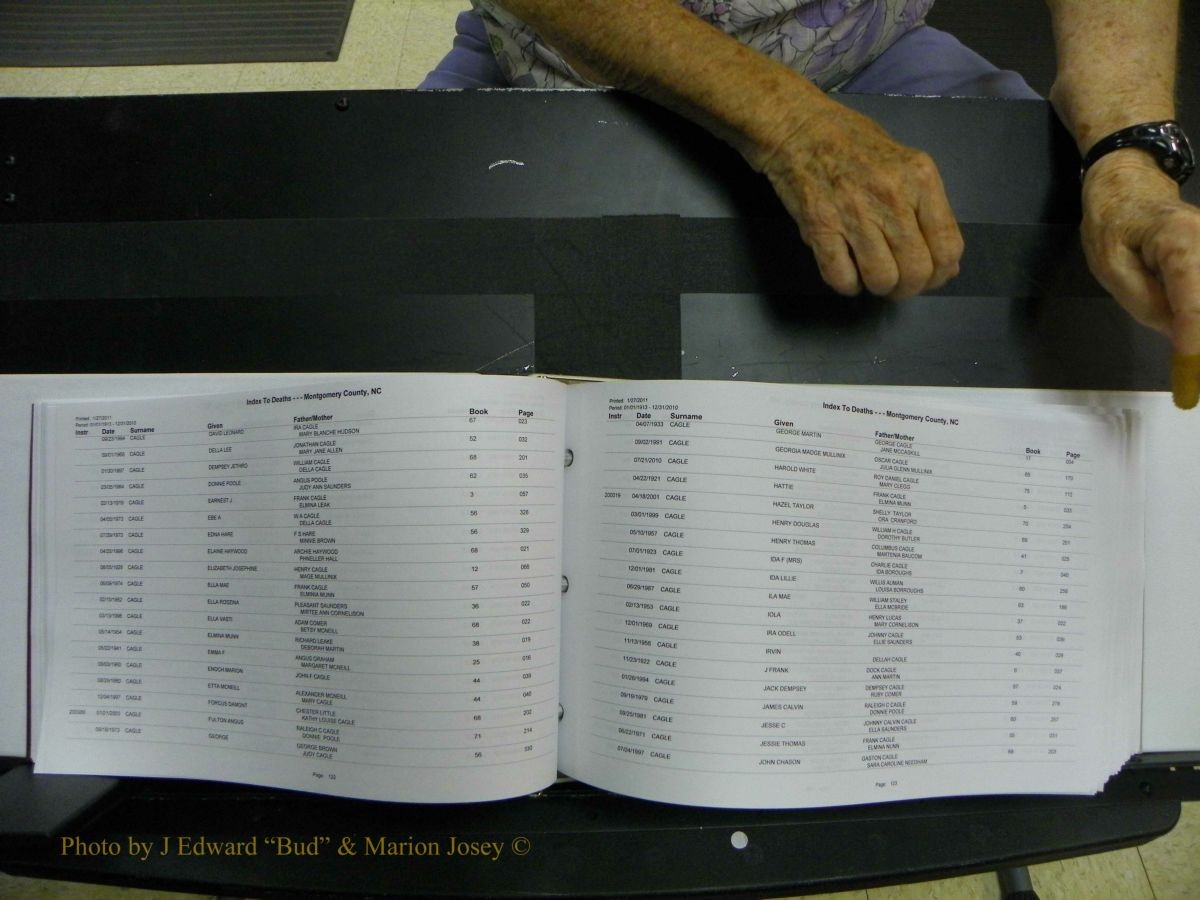 Index To Deaths - - - Montgomery County, NC
Printed 1/27/2011
Period: 01/01/1913 - 12/31/2010
Instr Date Surname Given Father/Mother Book Page
09/23/1994 CAGLE DAVID LEONARD IRA CAGLE 67 023
MARY BLANCHE HUDSON
CAGLE DELLA LEE JONATHAN CAGLE 52 032
MARY JANE ALLEN
CAGLE DEMPSEY JETHRO WILLIAM CAGLE 68 201
DELLA CAGLE
CAGLE DONNIE POOLE ANGUS POOLE 62 035
JUDY ANN SAUNDERS
CAGLE EARNEST J FRANK CAGLE 3 057
ELMINA LEAK
CAGLE EBE A W A CAGLE 56 328
DELLA CAGLE
CAGLE EDNA HARE F S HARE 56 329
MINNIE BROWN
CAGLE ELAINE HAYWOOD ARCHIE HAYWOOD 68 021
PHNELLER HALL
CAGLE ELIZABETH JOSEPHINE HENRY CAGLE 12 066
MAGE MULLINIX
CAGLE ELLA MAE FRANK CAGLE 57 050
ELMINIA MUNN
CAGLE ELLA ROSEINA PLEASANT SAUNDERS 36 022
MIRTEE ANN CORNELISON
CAGLE ELLA VASTI ADAM COMER 68 022
BETSY MCNEILL
CAGLE ELMINA MUNN RICHARD LEAKE 38 019
DEBORAH MARTIN
CAGLE EMMA F ANGUS GRAHAM 25 016
MARGARET MCNEILL
CAGLE ENOCH MARION JOHN F CAGLE 44 039
CAGLE ETTA MCNEILL ALEXANDER MCNEILL 44 040
MARY CAGLE
CAGLE FORCUS DAMONT CHESTER LITTLE 68 202
KATHY LOUISE CAGLE
CAGLE FULTON ANGUS RALEIGH C CAGLE 71 214
DONNIE POOLE
CAGLE GEORGE GEORGE BROWN 56 330
JUDY CAGLE
Page: 122
Index To Deaths - - - Montgomery County, NC
Printed: 1/27/2011
Period: 01/01/1913 - 12/31/2010
Instr Date Surname Given Father/Mother Book Page
04/07/1933 CAGLE GEORGE MARTIN GEORGE CAGLE 17 004
JANE MCCASKILL
09/02/1991 CAGLE GEORGIA MADGE MULLINIX OSCAR CAGLE 65 170
JULIA GLENN MULLINIX
07/21/2010 CAGLE HAROLD WHITE ROY DANIEL CAGLE 75 112
MARY CLEGG
04/22/1921 CAGLE HATTIE FRANK CAGLE 5 033
ELMINA MUNN
200019 04/18/2001 CAGLE HAZEL TAYLOR SHELLY TAYLOR 70 204
ORA CRANFORD
03/01/1999 CAGLE HENRY DOUGLAS WILLIAM H CAGLE 69 201
DOROTHY BUTLER
05/10/1957 CAGLE HENRY THOMAS COLUMBUS CAGLE 41 025
MARTENIA BAUCOM
07/01/1923 CAGLE IDA F (MRS) CHARLIE CAGLE 7 040
IDA BOROUGHS
12/01/1981 CAGLE IDA LILLIE WILLIS AUMAN 60 258
LOUISA BORROUGHS
06/29/1987 CAGLE ILA MAE WILLIAM STALEY 63 188
ELLA MCBRIDE
02/13/1953 CAGLE IOLA HENRY LUCAS 37 002
MARY CORNELISON
12/01/1969 CAGLE IRA ODELL JOHNNY CAGLE 53 039
ELLIE SAUNDERS
11/13/1956 CAGLE IRVIN 40 029
DELLAH CAGLE
11/23/1922 CAGLE J FRANK DOCK CAGLE 6 007
ANN MARTIN
01/26/1994 CAGLE JACK DEMPSEY DEMPSEY CAGLE 67 024
RUBY COMER
09/19/1979 CAGLE JAMES CALVIN RALEIGH C CAGLE 59 276
DONNIE POOLE
09/25/1981 CAGLE JESSE C JOHNNY CALVIN CAGLE 60 257
ELLA SAUNDERS
06/22/1971 CAGLE JESSIE THOMAS FRANK CAGLE 55 031
ELMINA NUNN
07/24/1997 CAGLE JOHN CHASON GASTON CAGLE 68 203
SARA CAROLINE NEEDHAM
Page: 123
Photo by J Edward “Bud” & Marion Josey ©